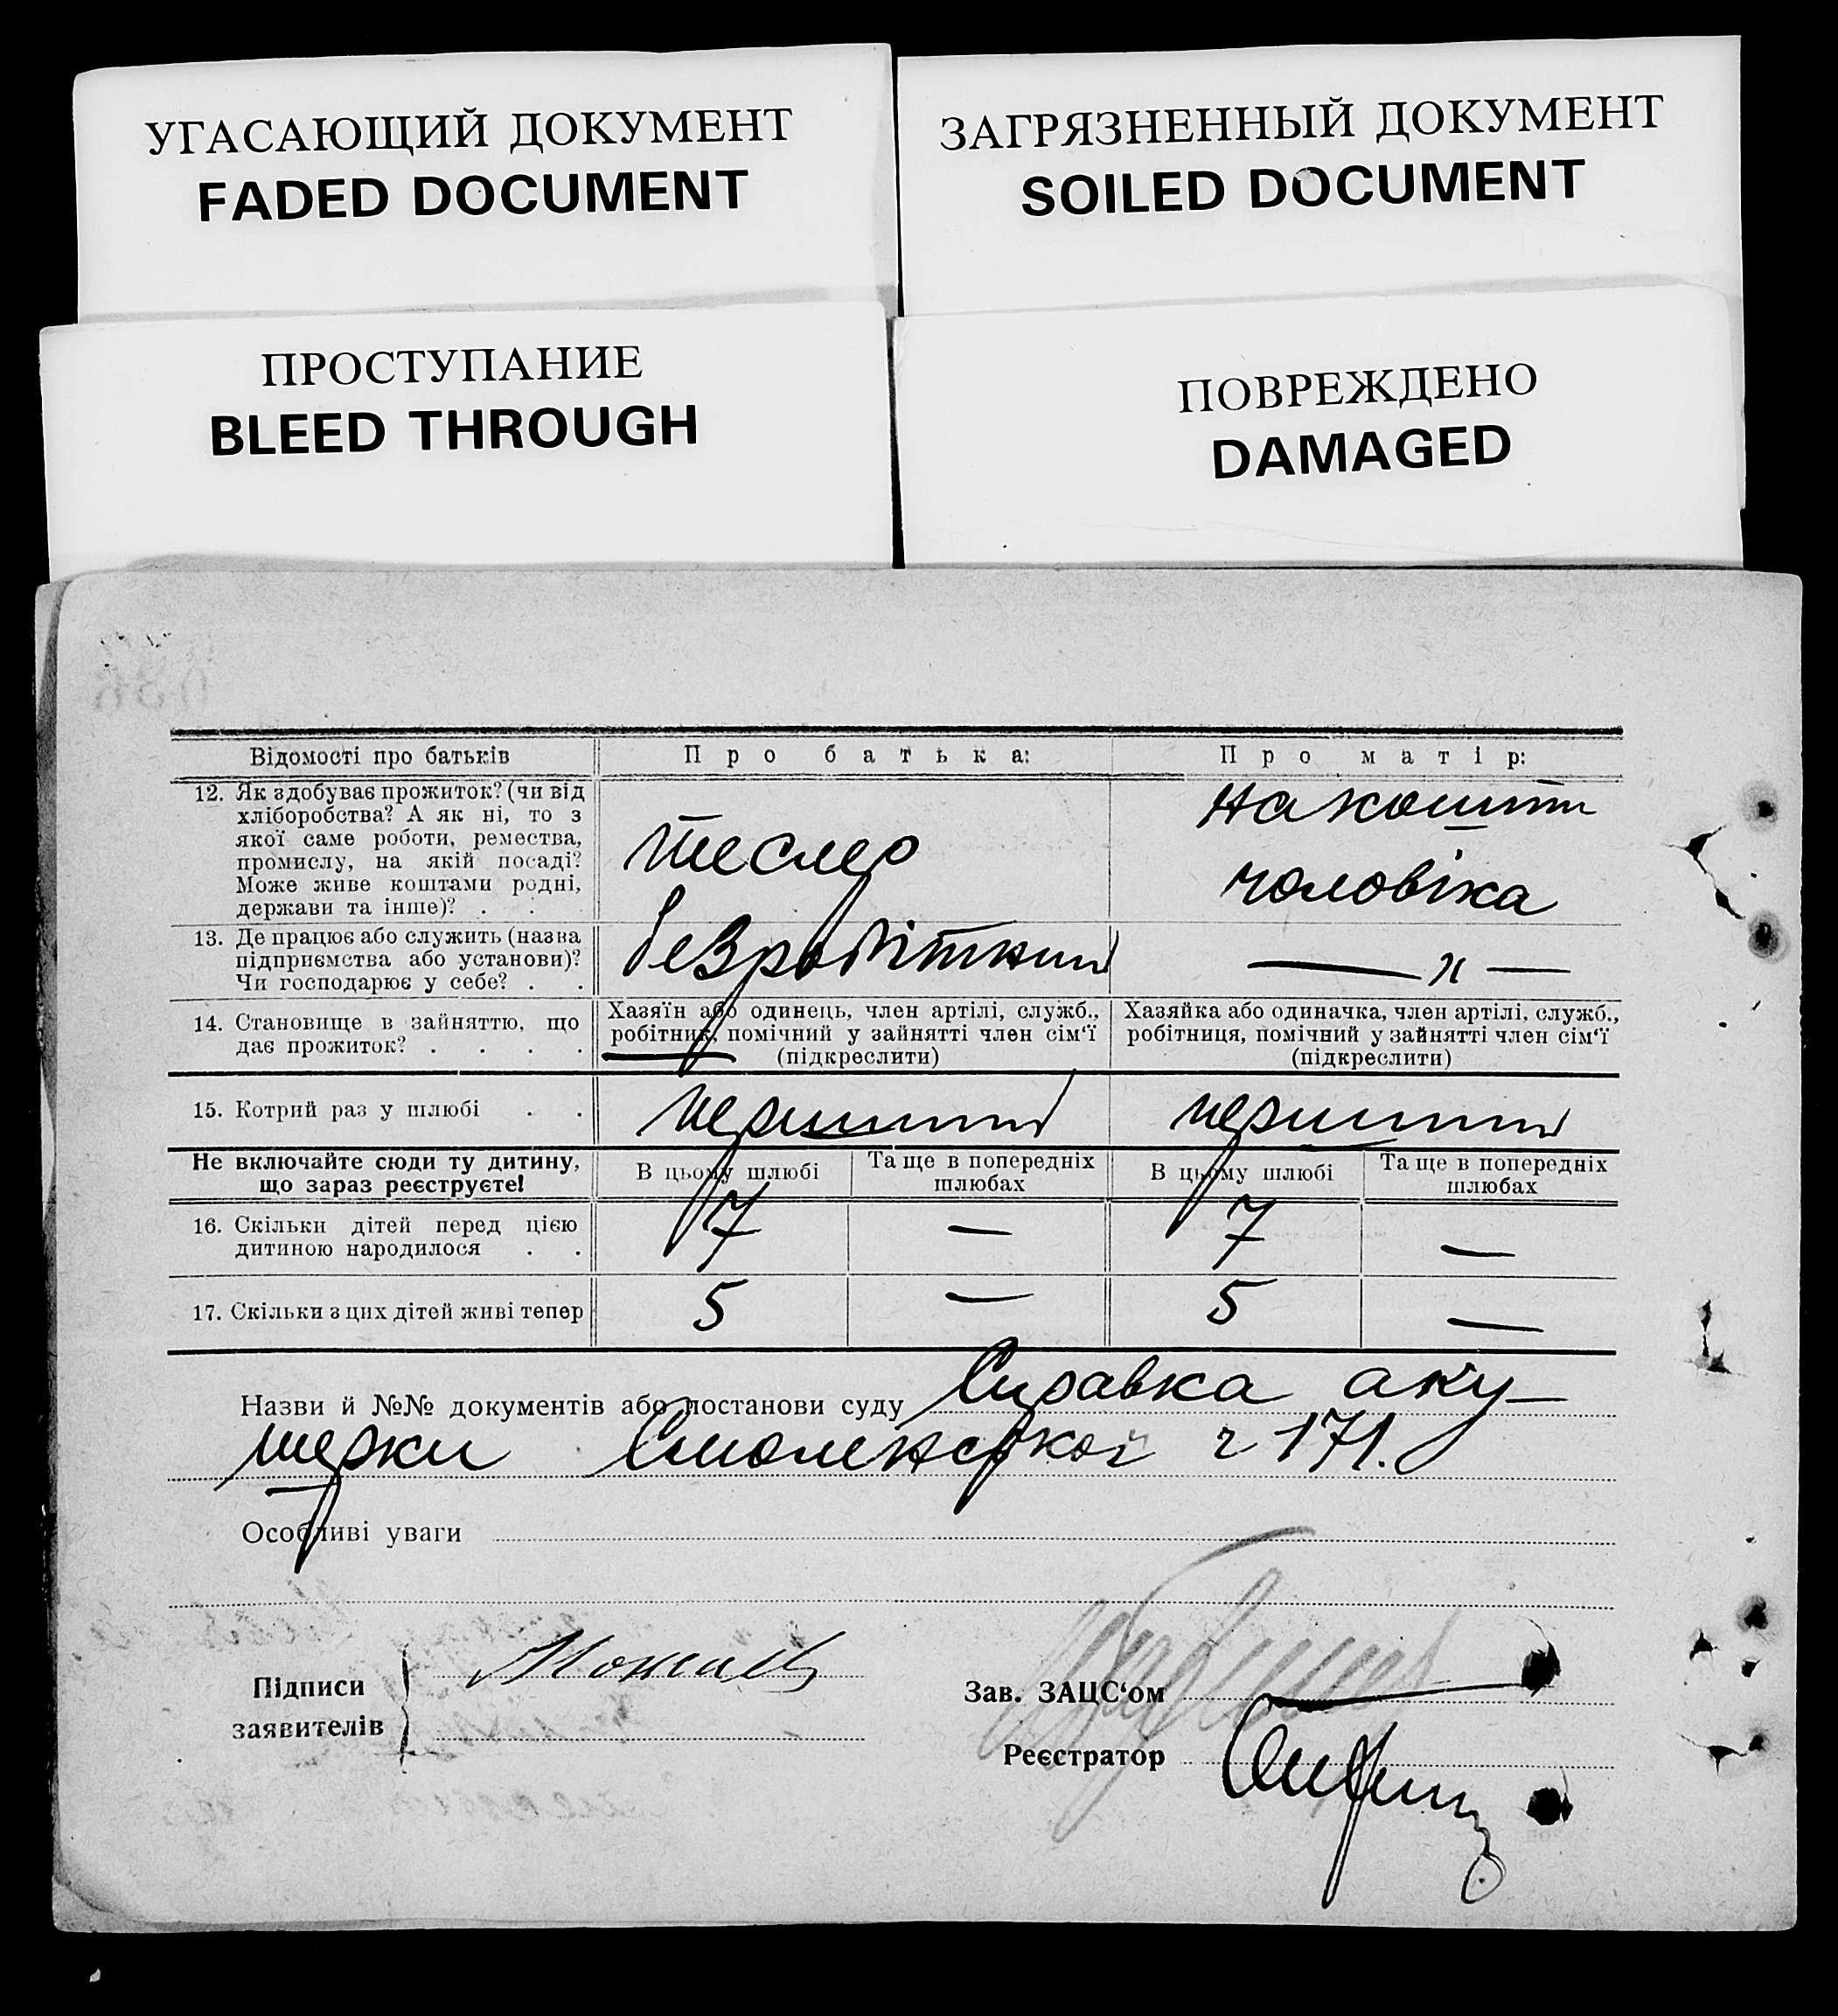 УГАСАЮЩИЙ ДОКУМЕНТ
FADED DOCUMENT
ЗАГРЯЗНЕННЫЙ ДОКУМЕНТ
SOILED DOCUMENT
ПРОСТУПАНИЕ
BLEED THROUGH
ПОВРЕЖДЕНО
DAMAGED
Відомості про батьків
Про батька:
Про матір:
12. Як здобуває прожиток? (чи від
хліборобства? А як ні, то з
якої саме роботи, ремества,
промислу, на якій посаді?
Може живе коштами родні,
держави та інше)? . .
тесляр
на кошти
чоловіка
13. Де працює або служить (назва
підприємства або установи)?
Чи господарює у себе? . .
безробітний
— „ —
14. Становище в зайняттю, що
дає прожиток? . . . .
Хазяїн або одинець, член артілі, служб.,
робітник, помічний у зайнятті член сім‘ї
(підкреслити)
Хазяйка або одиначка, член артілі, служб.,
робітниця, помічний у зайнятті член сім‘ї
(підкреслити)
15. Котрий раз у шлюбі . .
перший
перший
Не включайте сюди ту дитину,
що зараз реєструєте!
В цьому шлюбі
Та ще в попередніх
шлюбах
В цьому шлюбі
Та ще в попередніх
шлюбах
16. Скільки дітей перед цією
дитиною народилося . .
7
—
7
—
17. Скільки з цих дітей живі тепер
5
—
5
—
Назви й №№ документів або постанови суду Справка аку-
шерки Смоленської ч 171.
Особливі уваги
Підписи
заявителів
Зав. ЗАЦС‘ом
Реєстратор